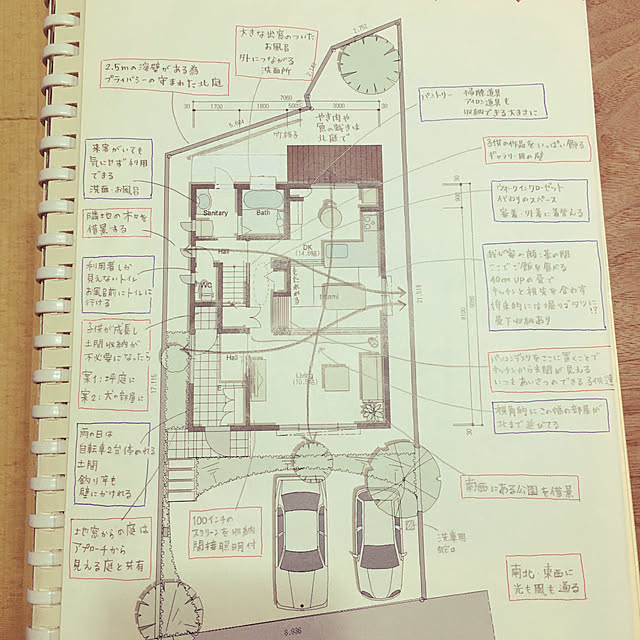 大きな出窓のついた
お風呂
外につながる
洗面所
2.5mの
プライバシーの守まれた北庭
パントリー
掃除道具
アイロン道具も
収納できる大きさに
2,752
7060
1700
1800
3000
竹格子
やき肉や
北庭で
来客がいても
気にせず利用
できる
洗面・お風呂
隣地の木々を
借景する
利用者しか
見えないトイレ
お風呂前にトイレに
行ける
子供が成長し
土間収納が
不必要になったら
案1:坪庭に
案2:犬の部屋に
雨の日は
自転車2台停めれる
土間
釣り竿も
壁にかけれる
地窓からの庭は
アプローチから
見える庭と共有
子供の作品をいっぱい飾る
ギャラリー用の壁
ウォークインクローゼット
代わりのスペース
ここでご飯を食べる
40cm UPの畳で
キッチンと視線を合わす
将来的には掘りゴタツに!?
畳下収納あり
パソコンデスクをここに置くことで
キッチンから玄関が見える
いつもあいさつのできる子供達
視角的にこの幅の部屋が
北まで延びてる
南西にある公園を借景
南北・東西に
光も風も通る
100インチの
スクリーンを収納
間接照明付
洗車用
蛇口
Sanitary
Bath
Hall
WC
DK
Hall
Living
8,936